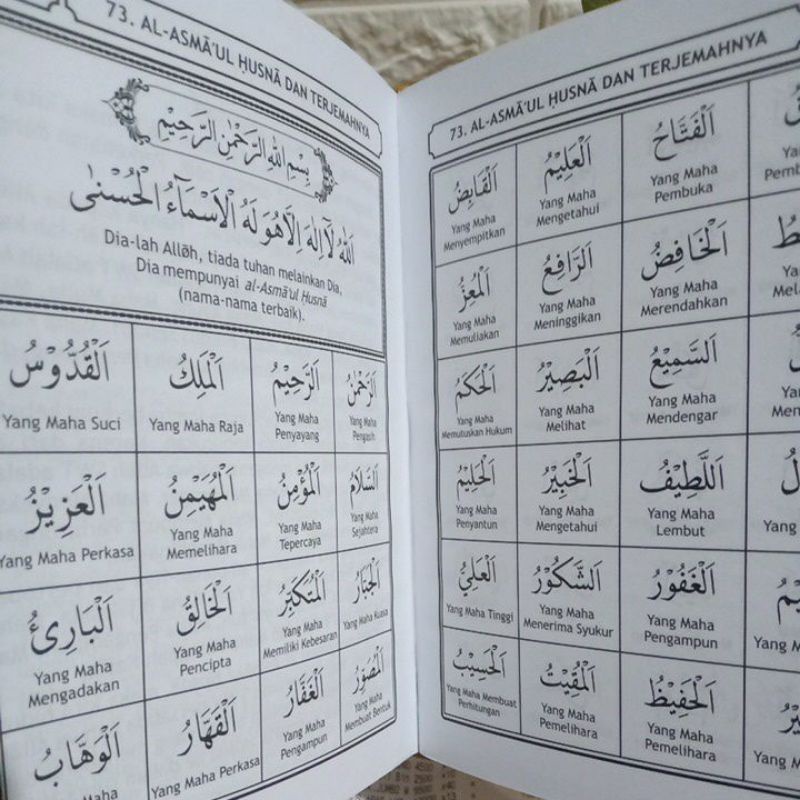 73. AL-ASMĀ'UL ḤUSNĀ DAN TERJEMAHNYA
بِسْمِ اللهِ الرَّحْمٰنِ الرَّحِيْمِ
اَللهُ لَآ اِلٰهَ اِلَّا هُوَ لَهُ الْاَسْمَآءُ الْحُسْنٰى
Dia-lah Allōh, tiada tuhan melainkan Dia,
Dia mempunyai al-Asmā'ul Ḥusnā
(nama-nama terbaik).
اَلرَّحْمٰنُ
Yang Maha
Pengasih
اَلرَّحِيْمُ
Yang Maha
Penyayang
اَلْمَلِكُ
Yang Maha Raja
اَلْقُدُّوْسُ
Yang Maha Suci
اَلسَّلَامُ
Yang Maha
Sejahtera
اَلْمُؤْمِنُ
Yang Maha
Tepercaya
اَلْمُهَيْمِنُ
Yang Maha
Memelihara
اَلْعَزِيْزُ
Yang Maha Perkasa
اَلْجَبَّارُ
Yang Maha Kuasa
اَلْمُتَكَبِّرُ
Yang Maha
Memiliki Kebesaran
اَلْخَالِقُ
Yang Maha
Pencipta
اَلْبَارِئُ
Yang Maha
Mengadakan
اَلْمُصَوِّرُ
Yang Maha
Membuat Bentuk
اَلْغَفَّارُ
Yang Maha
Pengampun
اَلْقَهَّارُ
Yang Maha Perkasa
اَلْوَهَّابُ
Maha
73. AL-ASMĀ'UL ḤUSNĀ DAN TERJEMAHNYA
اَلْفَتَّاحُ
Yang Maha
Pembuka
اَلْعَلِيْمُ
Yang Maha
Mengetahui
اَلْقَابِضُ
Yang Maha
Menyempitkan
اَلْخَافِضُ
Yang Maha
Merendahkan
اَلرَّافِعُ
Yang Maha
Meninggikan
اَلْمُعِزُّ
Yang Maha
Memuliakan
اَلسَّمِيْعُ
Yang Maha
Mendengar
اَلْبَصِيْرُ
Yang Maha
Melihat
اَلْحَكَمُ
Yang Maha
Memutuskan Hukum
اَللَّطِيْفُ
Yang Maha
Lembut
اَلْخَبِيْرُ
Yang Maha
Mengetahui
اَلْحَلِيْمُ
Yang Maha
Penyantun
اَلْغَفُوْرُ
Yang Maha
Pengampun
اَلشَّكُوْرُ
Yang Maha
Menerima Syukur
اَلْعَلِيُّ
Yang Maha Tinggi
اَلْحَفِيْظُ
Yang Maha
Pemelihara
اَلْمُقِيْتُ
Yang Maha
Pemelihara
اَلْحَسِيْبُ
Yang Maha Membuat
Perhitungan